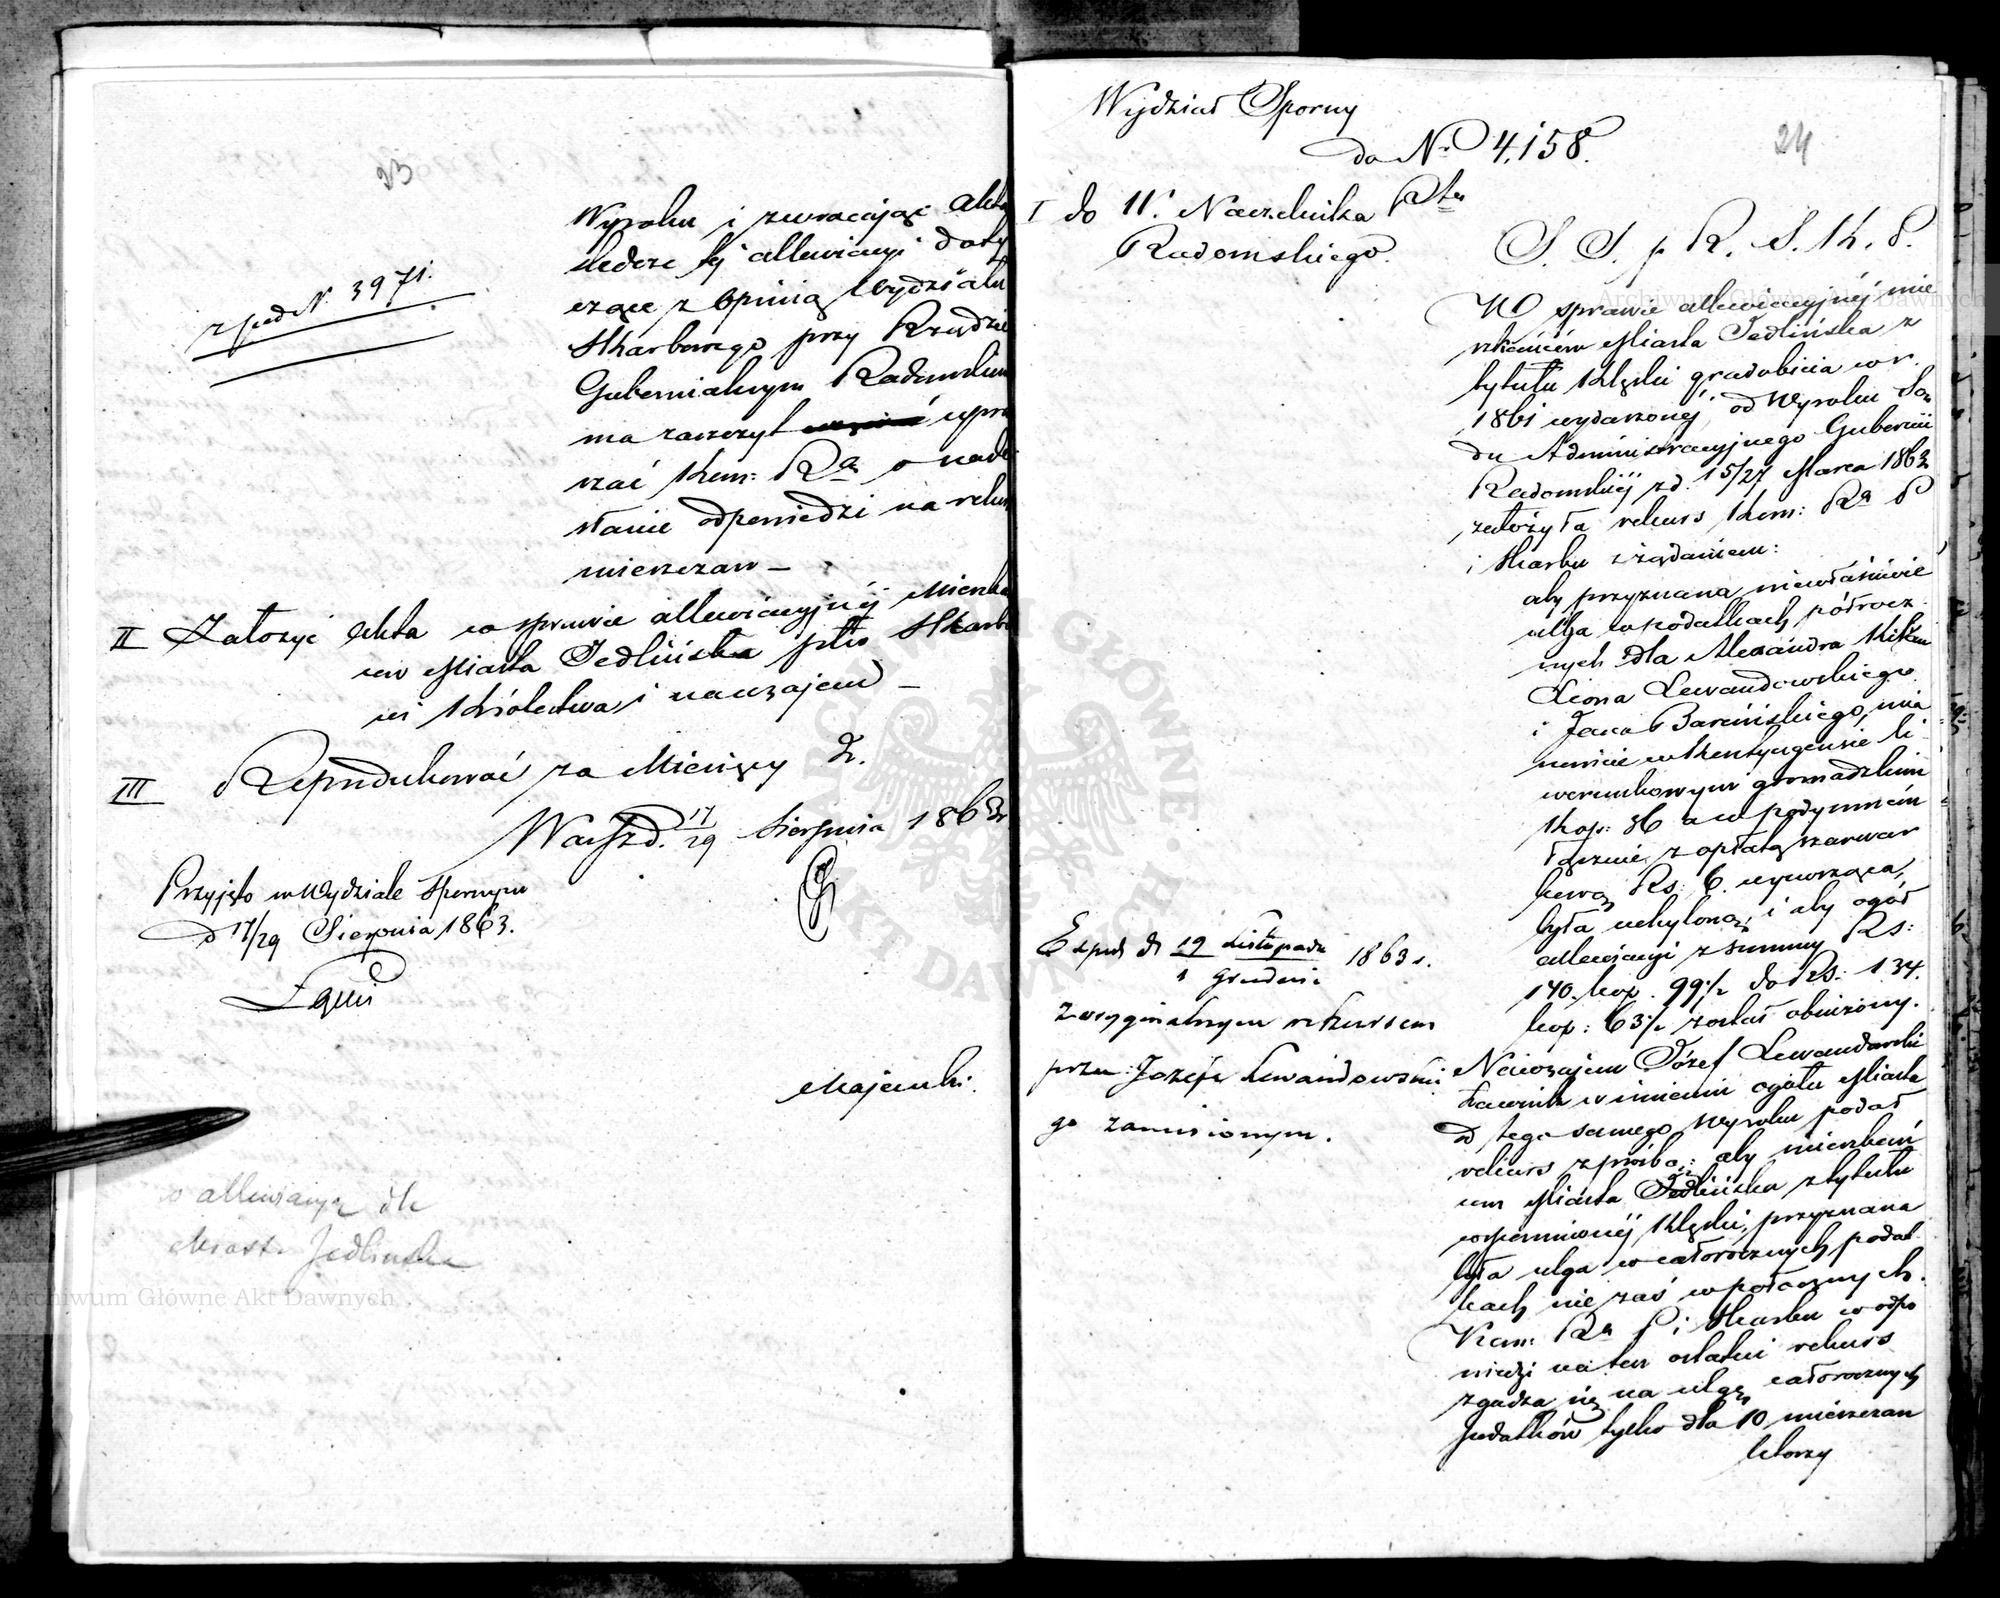 23
z pod N. 3971.
Wyroku i zwracając Akta
śledcze tej allewiacyi doty
czące z opinią Wydziału
Skarbowego przy Rządzie
Gubernialnym Radomskim
ma zaszczyt upra
szać Kom: Rą o nade
słanie odpowiedzi na rekurs
mieszczan –
II Założyć Akta w sprawie allewiacyjnéj Mieszkań
ców Miasta Jedlińska ptko Skarbo
wi Królestwa i nawzajem –
III Reprodukować za Miesięcy 2.
Warsz d. 17/29 Sierpnia 1863 r.
Przyjęto w Wydziale Spornym
d 17/29 Sierpnia 1863.
Majewski.
o allewiacyą dla
Miasta Jedlińska
Wydział Sporny
do No 4,158.
24
I do W. Naczelnika Ptu
Radomskiego.
S. S. p R. S. K. P.
W sprawie allewiacyjnéj mie
szkańców Miasta Jedlińska z
tytułu klęski gradobicia w r.
1861 wydarzonej, od Wyroku Są
du Administracyjnego Gubernii
Radomskiéj z d. 15/27 Marca 1863
założyła rekurs Kom: Ra P
i Skarbu z żądaniem:
aby przyznana niewłaściwie
ulga w podatkach półrocz
nych dla Alexandra
Leona Lewandowskiego
i Jana Barcińskiego, mia
nowicie w kontyngensie li
werunkowym gromadzkim
kop: 36 a w podymném
łącznie z opłatą szarwar
kową Rs: 6. wynosząca,
była uchyloną, i aby ogół
allewiacyi z summy Rs:
140. kop. 99½ do Rs: 134.
kop: 63½ został obniżony.
Nawzajem Józef Lewandowski
Ławnik w imieniu ogółu Miasta
od tego samego Wyroku podał
rekurs z prośbą: aby mieszkań
com Miasta Jedlińska z tytułu
wspomnionéj klęski, przyznana
była ulga w całorocznych podat
kach nie zaś w półrocznych.
Kom: Ra P i Skarbu w odpo
wiedzi na ten ostatni rekurs
zgadza się na ulgę całorocznych
podatków tylko dla 10 mieszczan
którzy
Exped d 19 Listopada / 1 Grudnia 1863 r.
Z oryginalnym rekursem
przez Józefa Lewandowskie
go zaniesionym.
Archiwum Główne Akt Dawnych
Archiwum Główne Akt Dawnych
ARCHIWUM GŁÓWNE AKT DAWNYCH